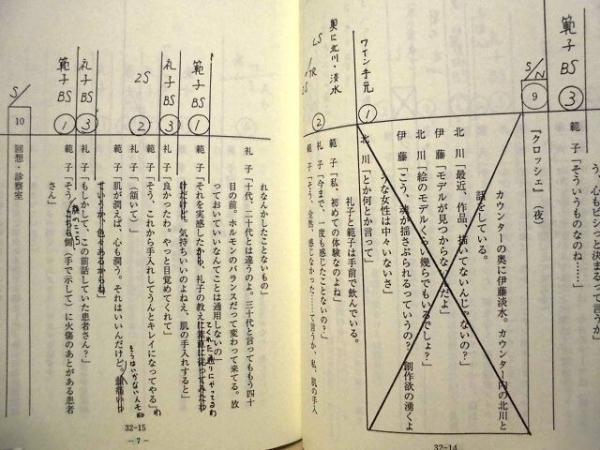 う、心もピシっと決まるって言うか
範子「そういうものなのね……」
範子BS ③
S/N
9
『クロッシェ』（夜）
カウンターの奥に伊藤淡水。カウンター内の北川と
話をしている。
北川「最近、作品、描いてないんじゃないの？」
伊藤「モデルが見つからないんだよ」
北川「絵のモデルくらい幾らでもいるでしょ？」
伊藤「こう、魂が揺さぶられるっていうの？　創作欲の湧くよ
うな女性は中々いないさ」
北川「とか何とか言って」
ワイン手元
①
礼子と範子は手前で飲んでいる。
奥に北川・淡水
②
範子「私、初めての体験なのよね」
礼子「今まで、一度も感じたことないの？」
範子「そう、全然、感じなかった……て言うか、私、肌の手入
32-14
れなんかしたことないもの」
礼子「十代、二十代とは違うのよ。三十代と言ってももう四十
目の前。ホルモンのバランスだって変わって来てる。放
っておいていいなんてことは通用しないの」
範子BS ①
範子「それを実感したかも、礼子の教え
けだけど、気持ちいいのよねえ、肌の手入れすると」
礼子BS ③
礼子「良かったわ。やっと目覚めてくれて」
範子「そう、これから手入れしてうんとキレイになってやる」
2S ②
礼子「（頷いて）」
範子BS
範子「肌が潤えば、心も潤う。それはいいんだけど、
礼子BS ③
礼子「もしかして、この前話していた患者さん？」
範子BS ①
範子「そう、（手で示して）に火傷のあとがある患者
さん」
S/
10
回想・診察室
32-15
-7-